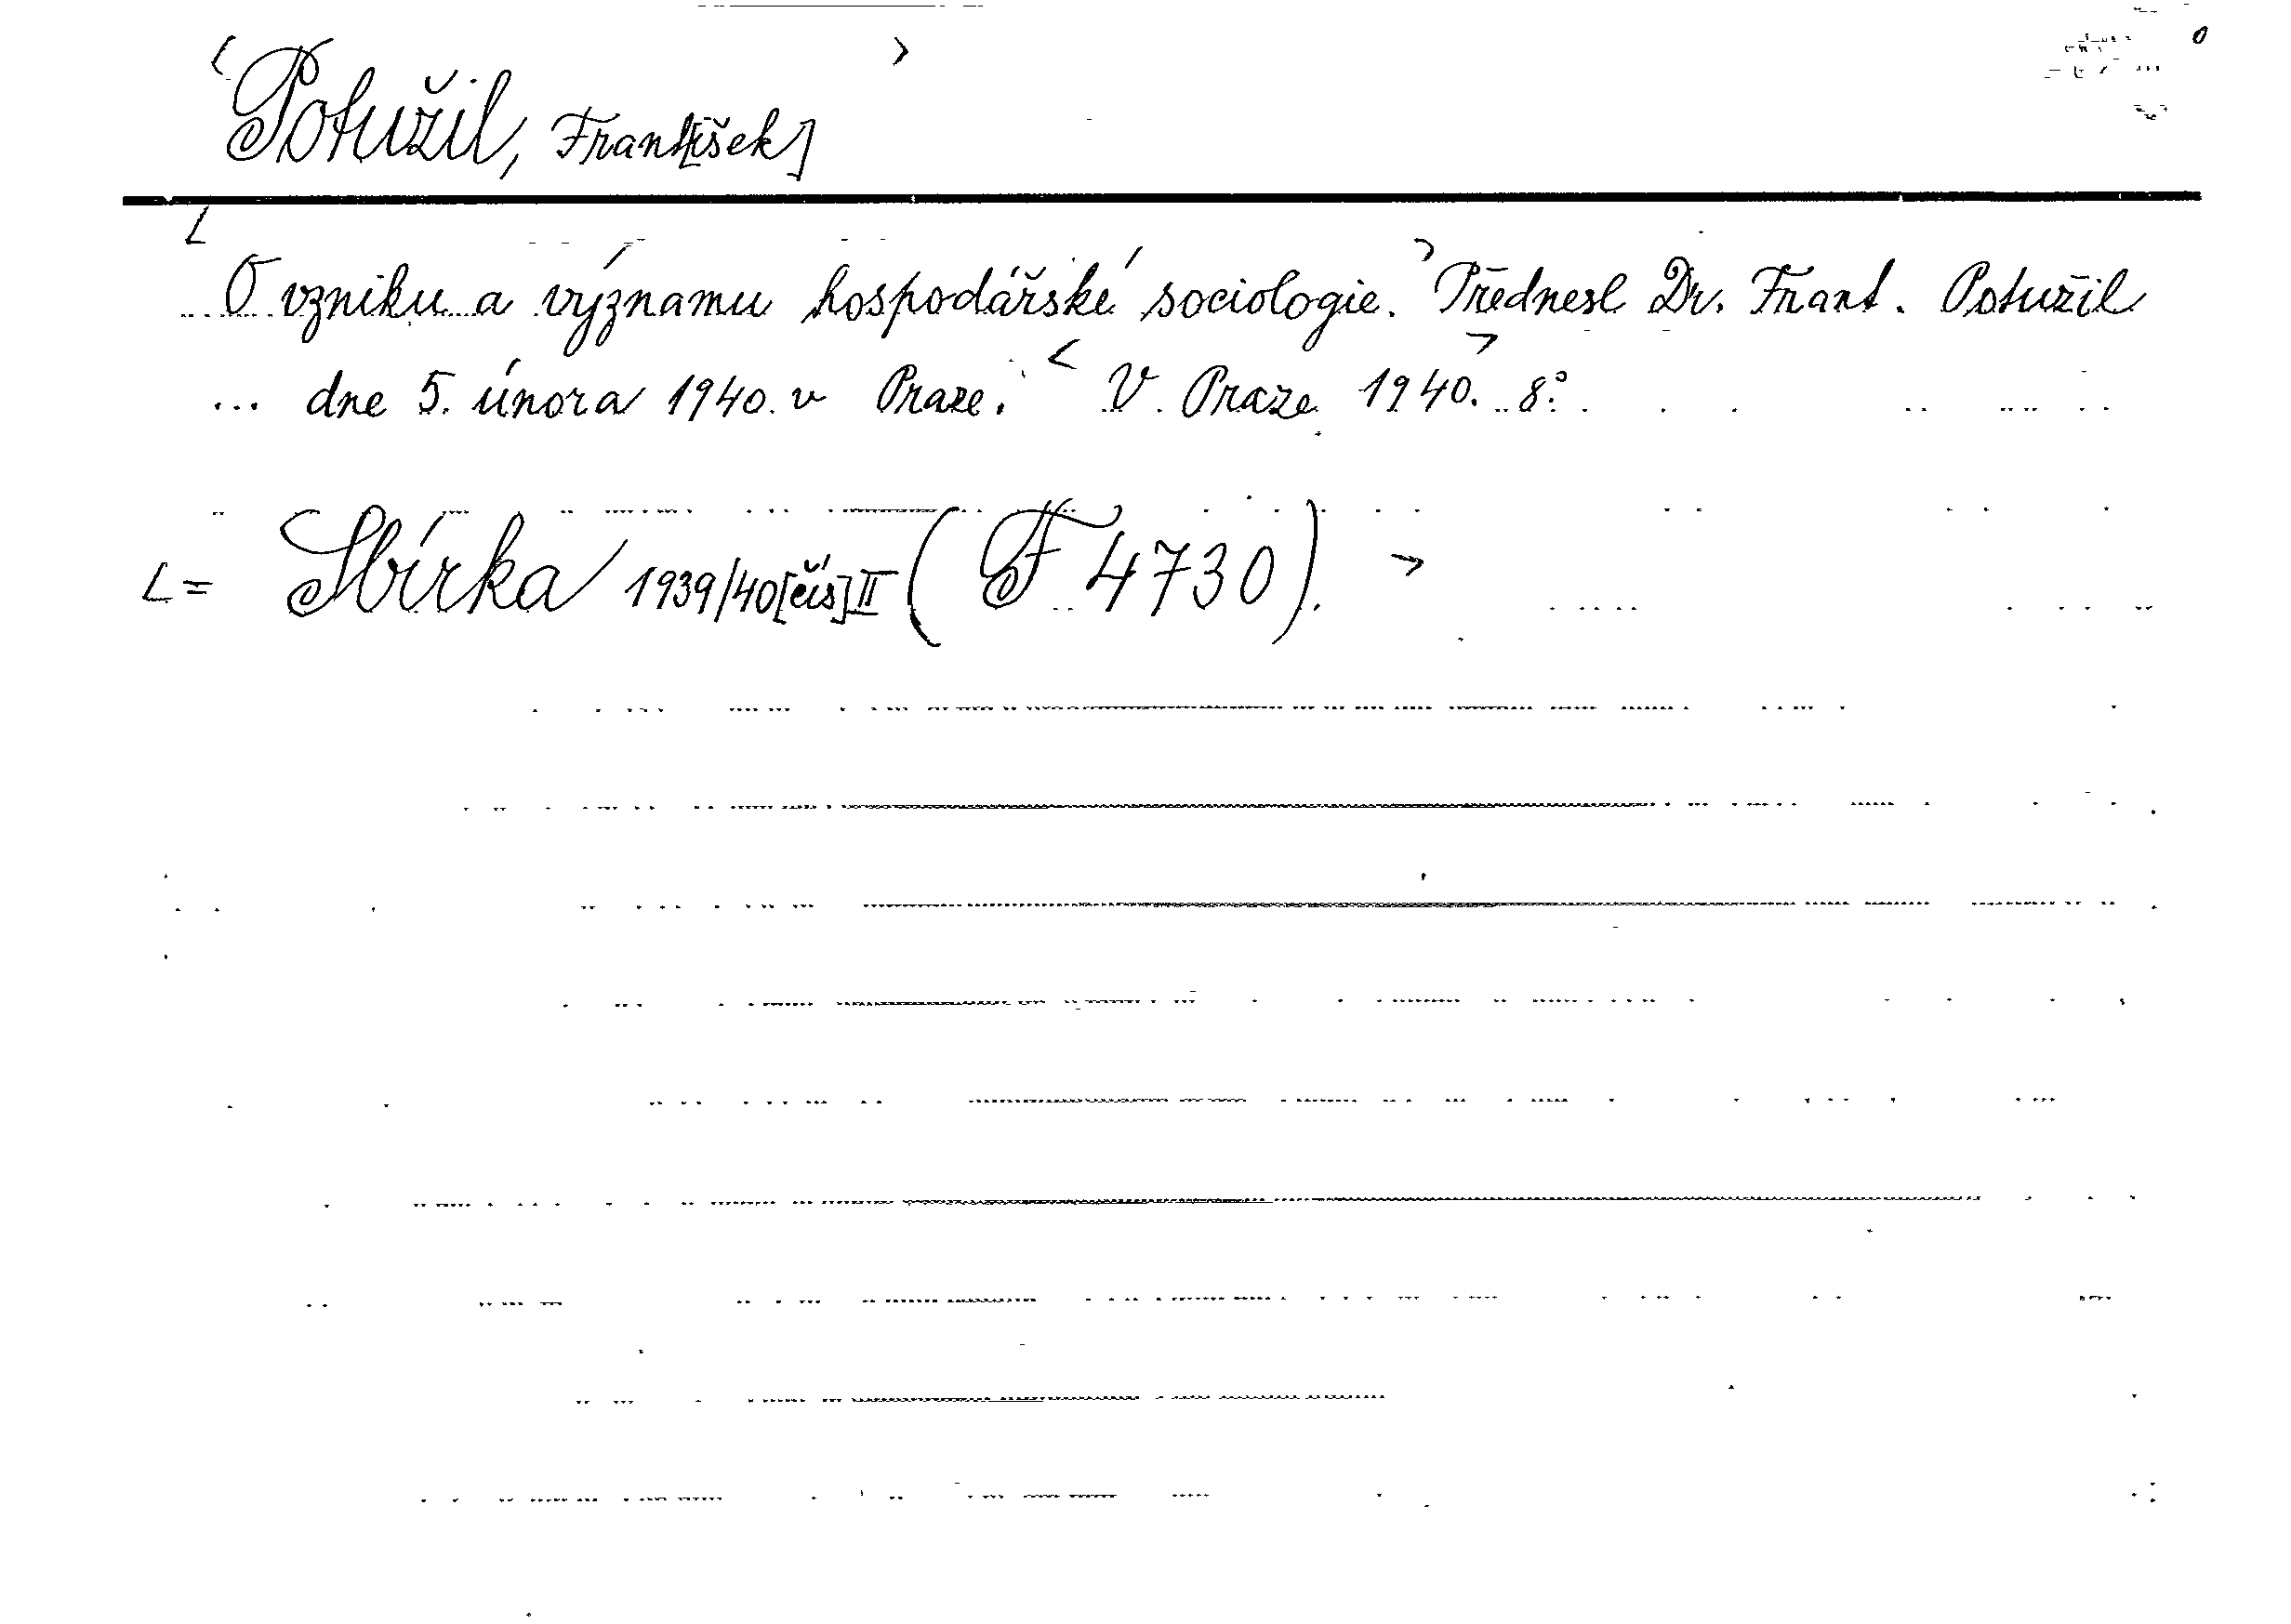 Potužil, Frant[išek]
O vzniku a významu hospodářské sociologie. Přednesl Dr. Frant. Potužil
... dne 5. února 1940. v Praze. V Praze 1940. 8°.
= Sbírka 1939/40[čís] II (F 4730).